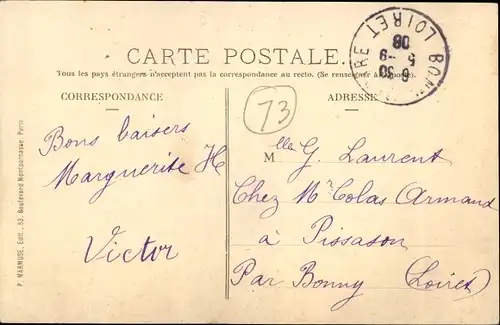 CARTE POSTALE
Tous les pays étrangers n'acceptent pas la correspondance au recto. (Se renseigner à la Poste).
CORRESPONDANCE
ADRESSE
73
Bons baisers
Marguerite H
Victor
Mlle G. Laurent
Chez Mr Colas Armand
à Pissason
Par Bonny (Loiret)
LOIRET
6 30
5 -9
08
P. MARMUSE, Edit., 53, Boulevard Montparnasse, Paris